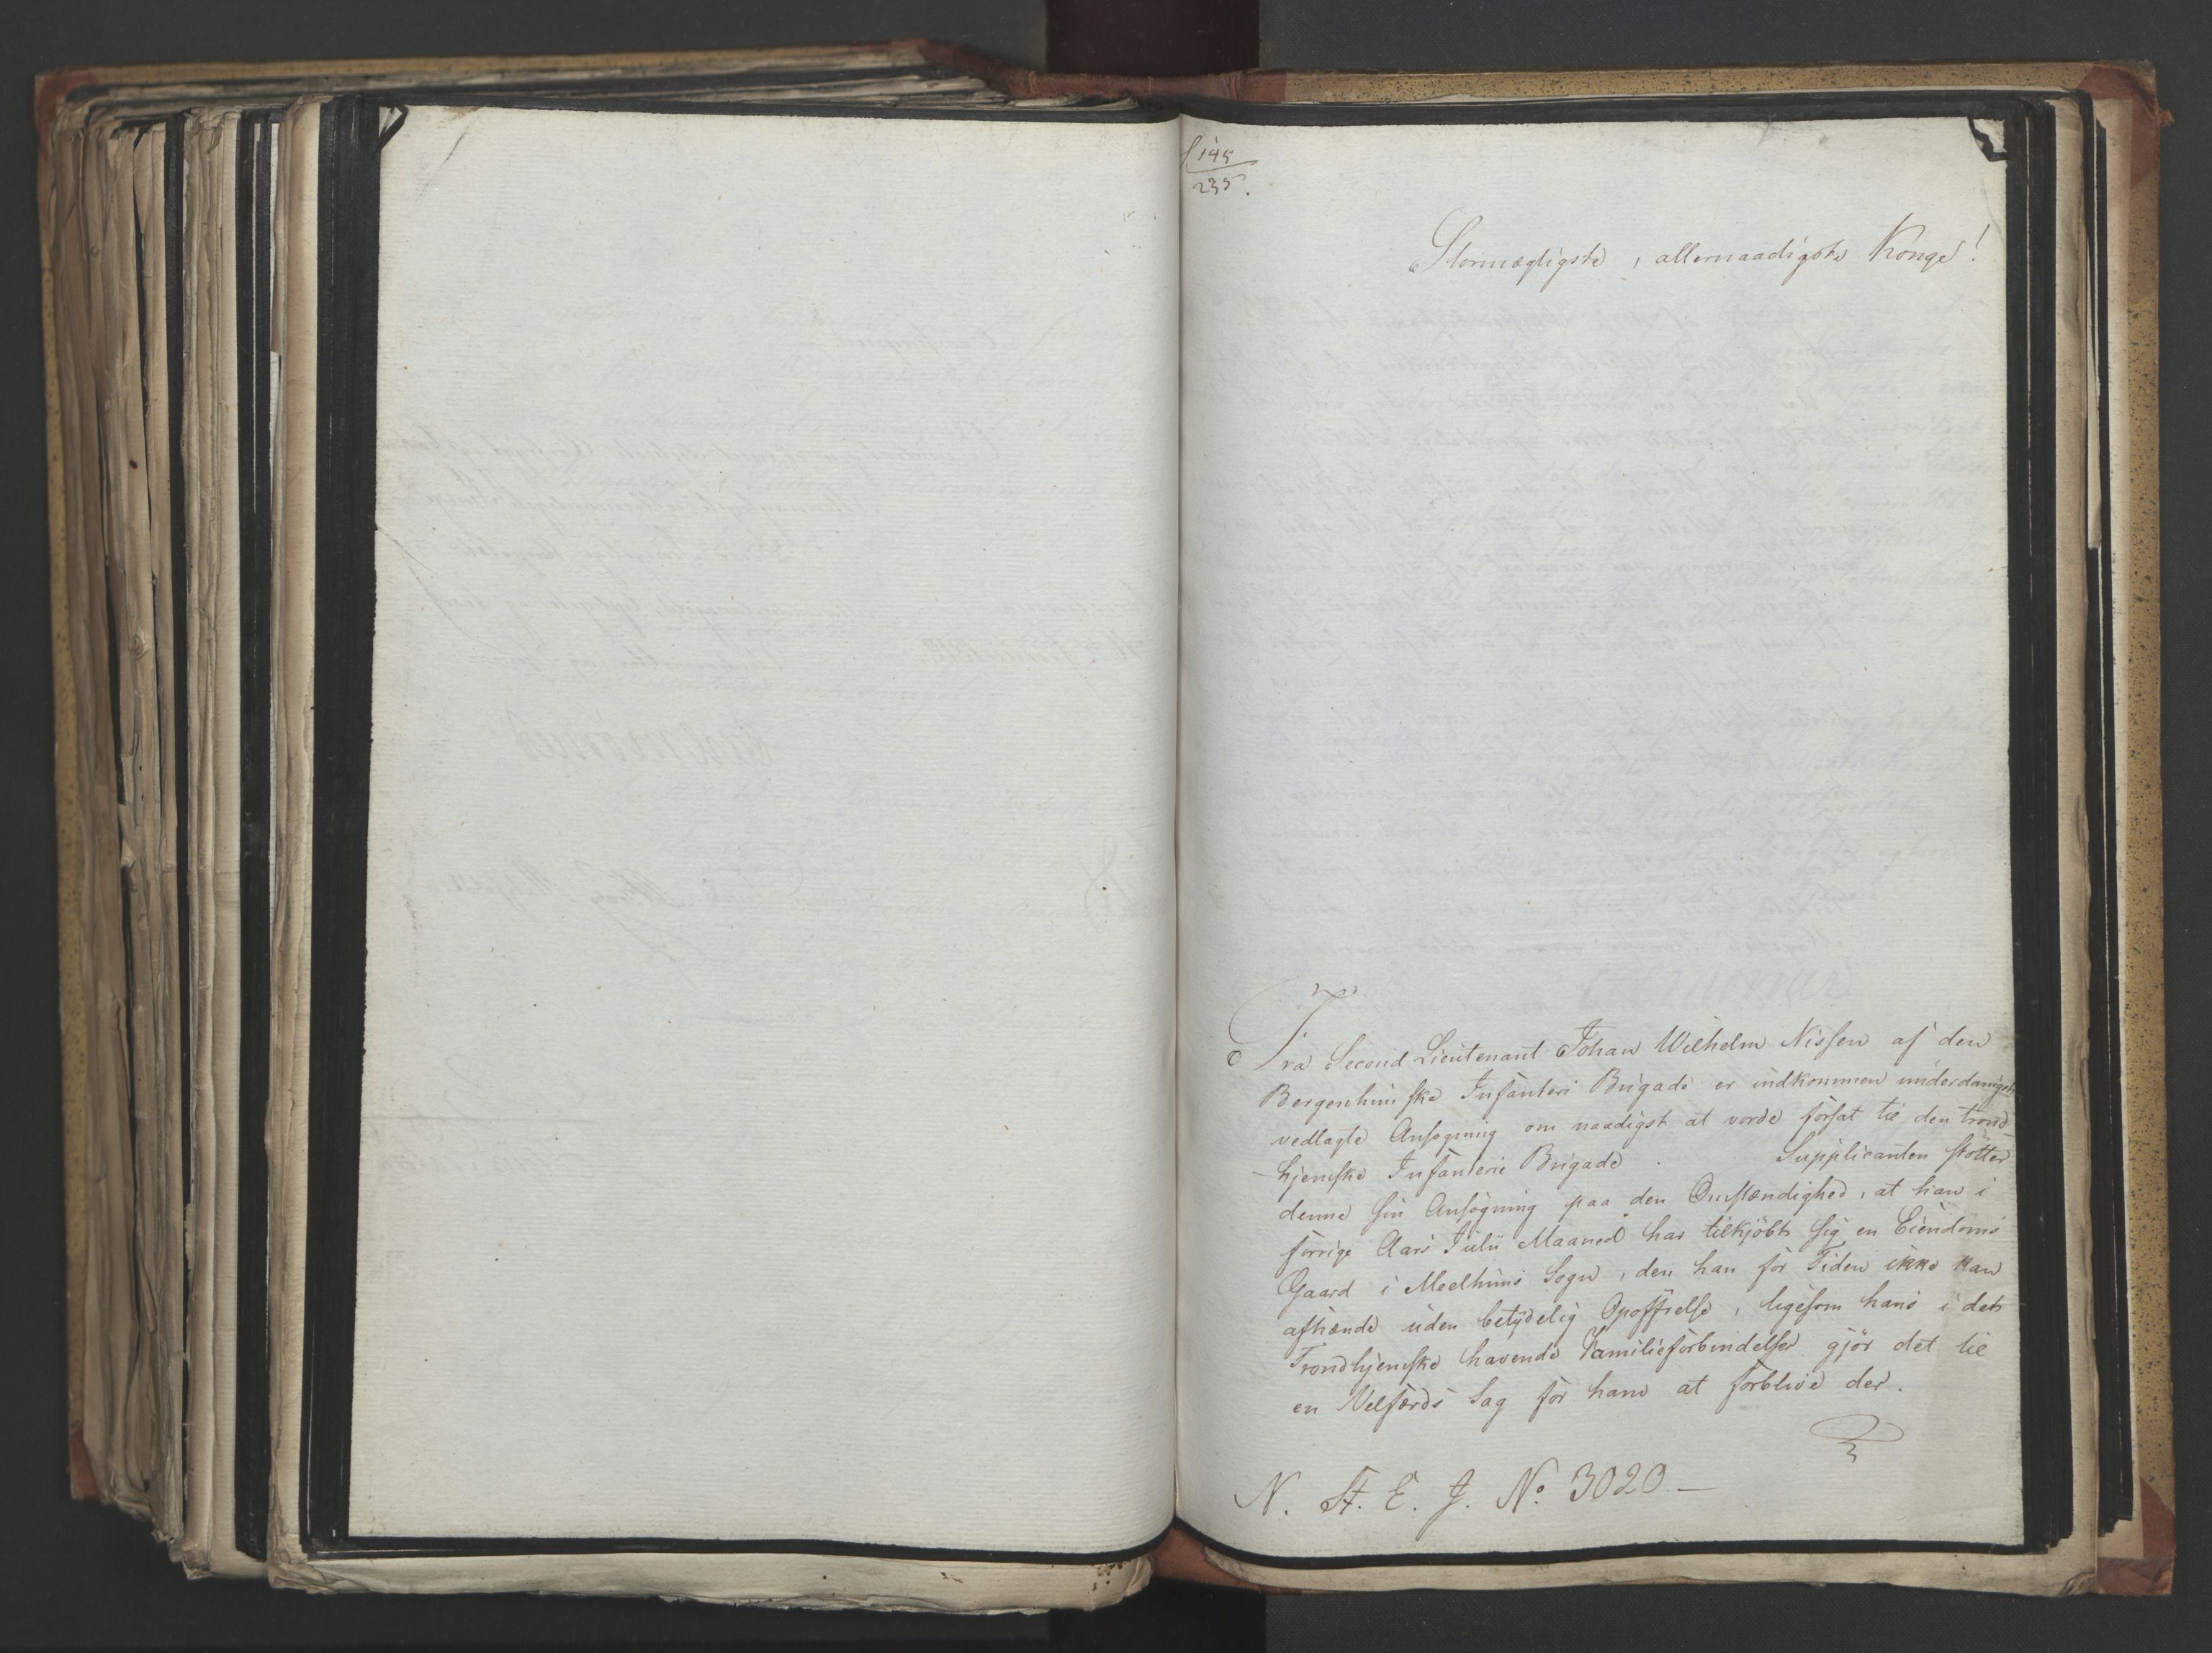 f 145
235.
Stormægtigste, allernaadigste Konge!
Fra Second Lieutenant Johan Wilhelm Nissen af den
Bergenhuusske Infanteri Brigade er indkommen underdanigst
vedlagte Ansøgning om naadigst at vorde forsat til den trond-
hjemske Infanterie Brigade. Supplicanten støtter
denne sin Ansøgning paa den Omstændighed, at han i
forrige Aars Julii Maaned har tilkjøbt sig en Eiendoms
Gaard i Meelhuus Sogn, den han for Tiden ikke kan
afhænde uden betydelig Opoffrelse, ligesom hans i det
Trondhjemske havende Familieforbindelser gjør det til
en Velfærds Sag for ham at forblive der.
N. St. E. J. No. 3020.—